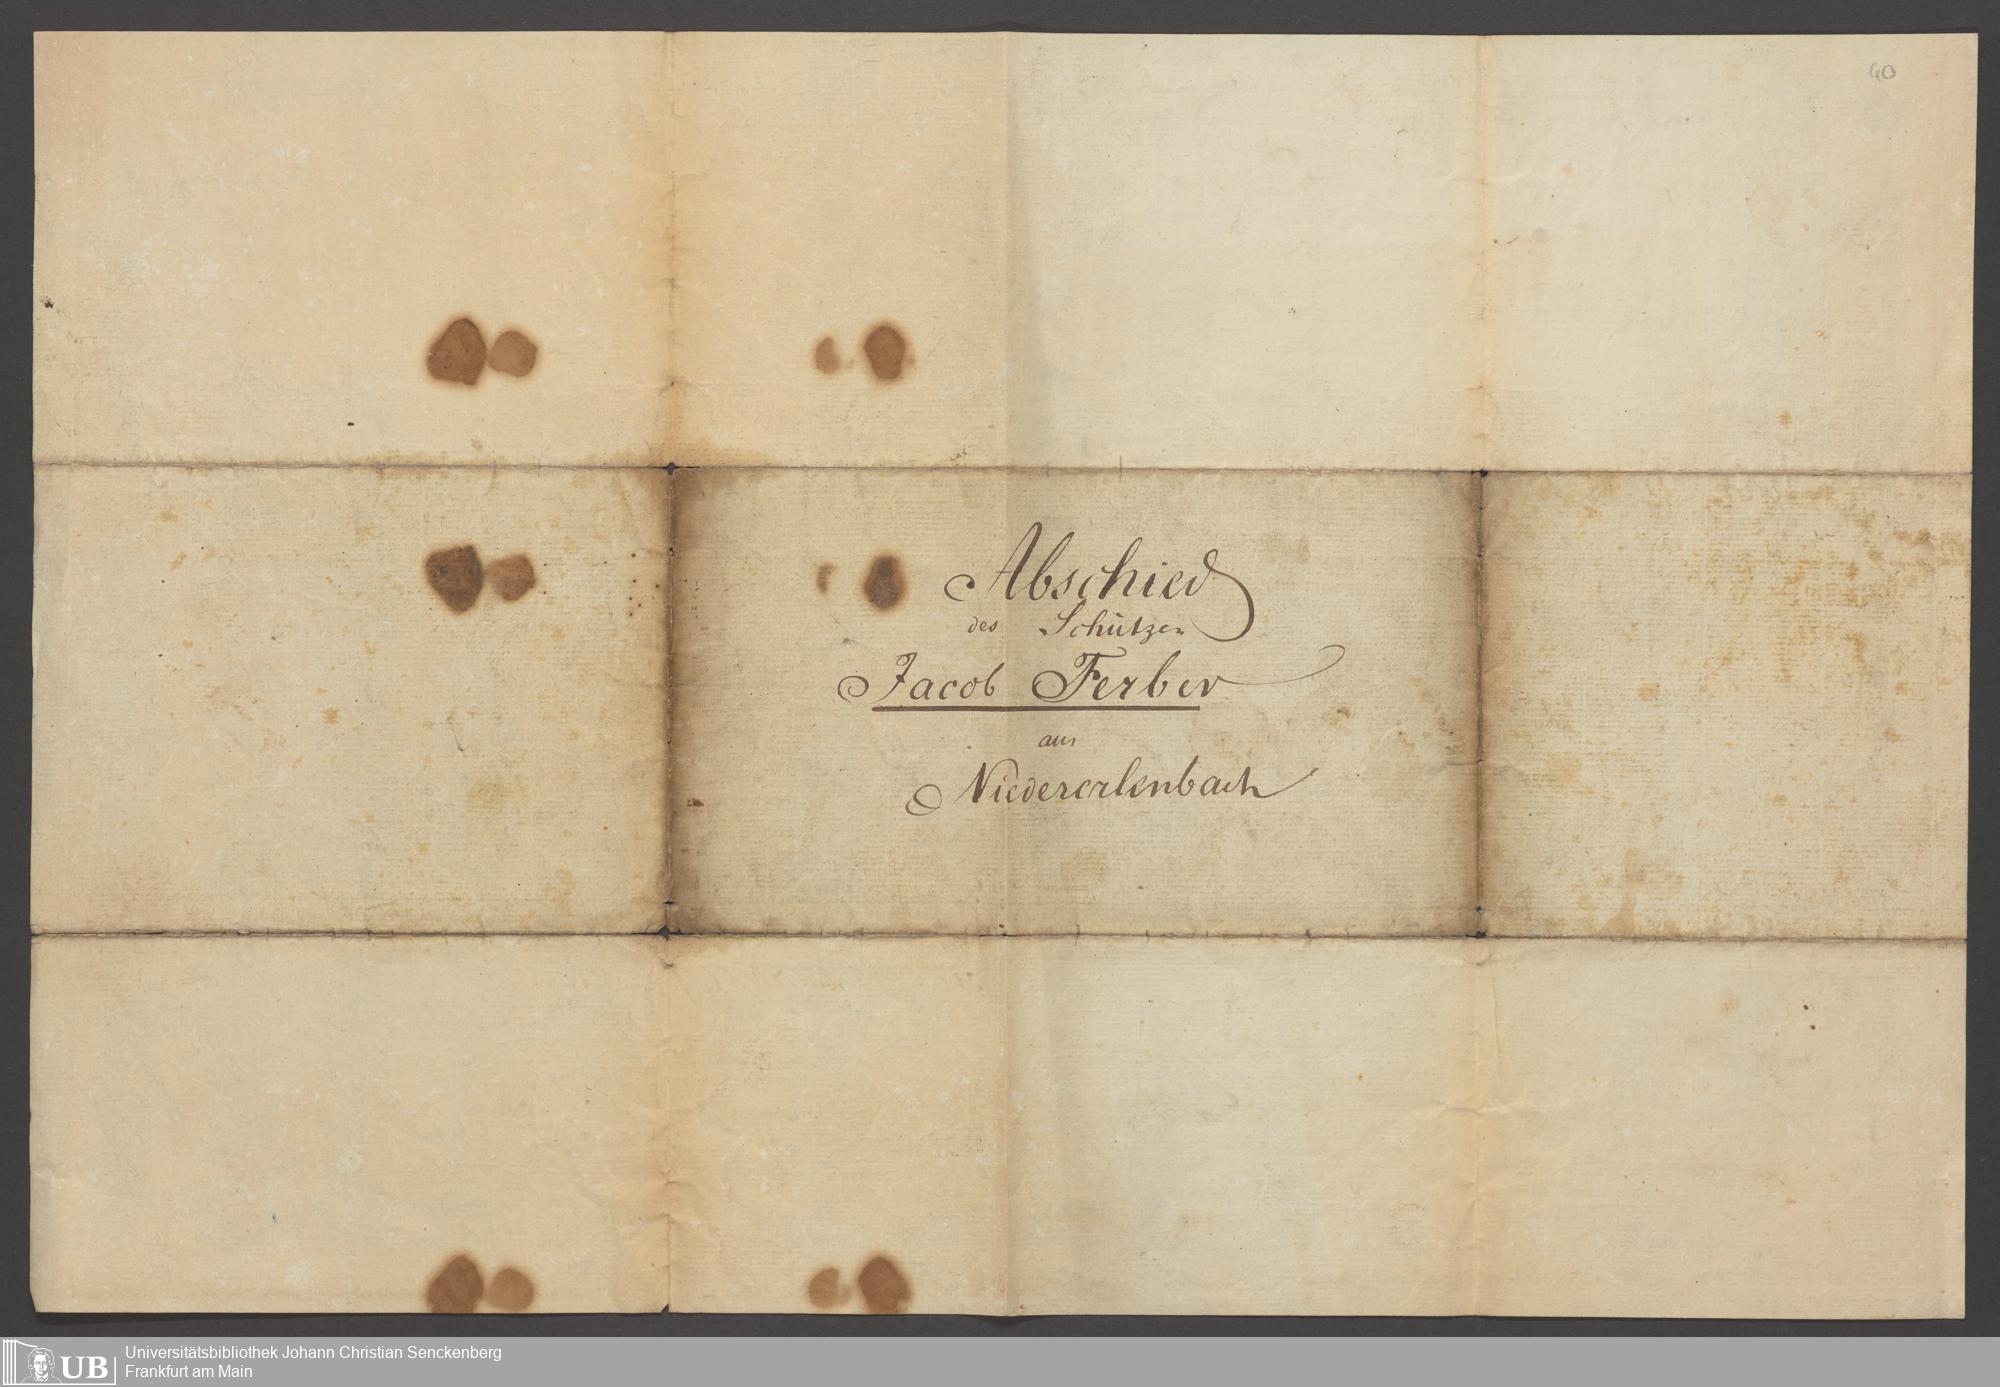 40
Abschied
des Schützen
Jacob Ferber
aus
Niedererlenbach
UB
Universitätsbibliothek Johann Christian Senckenberg
Frankfurt am Main